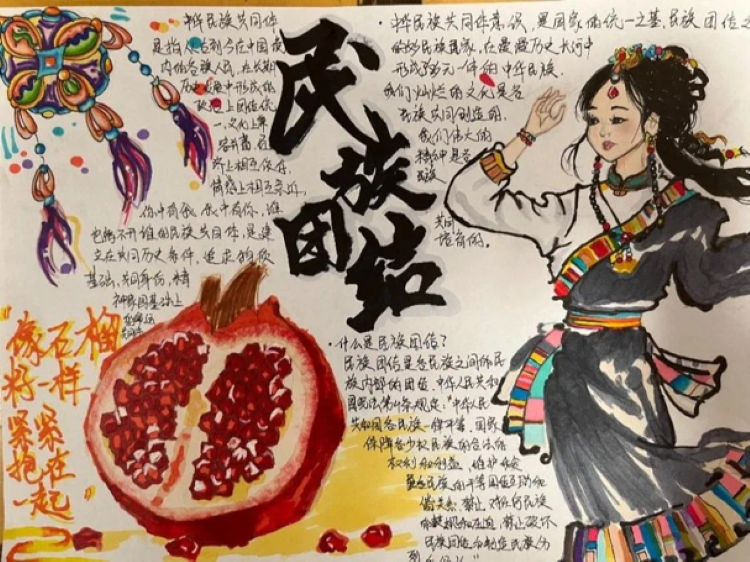 民族团结
中华民族共同体
是指从古到今在中国境
内的各族人民,在长期
历史发展中形成的
政治上团结统
一,文化上兼
容并蓄,经
济上相互依存,
情感上相互亲近,
你中有我,我中有你,谁
也离不开谁的民族共同体,是建
立在共同历史条件、
基础、共同身份、精
神家园基础上
共同体
中华民族共同体意识,是国家的统一之基、民族团结之
在漫漫历史长河中
形成多元一体的中华民族。
我们灿烂的文化是各
民族共同创造的,
我们伟大的
精神是各
民族
共同
培育的。
“像石榴
籽一样
紧紧
抱在
一起”
·什么是民族团结?
民族团结是各民族之间和民
族内部的团结。中华人民共和
国宪法第4条规定:“中华人民
共和国各民族一律平等。国家
保障各少数民族的合法的
权利和利益,维护和发
展各民族的平等团结互助和
谐关系。禁止对任何民族
的歧视和压迫,禁止破坏
民族团结和制造民族分
裂